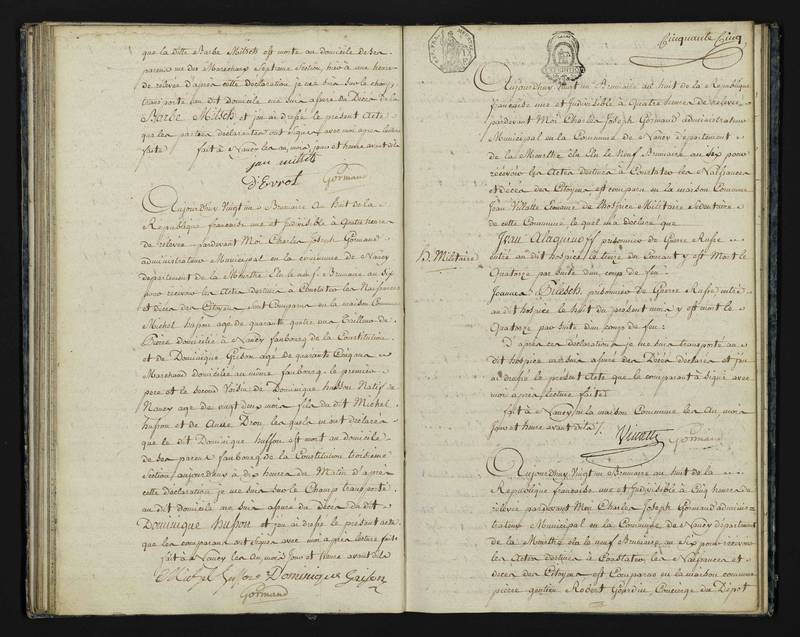 que la ditte Barbe Mitsch est morte au domicile de ses
parens rue des Maréchaux Septieme Section, hier à une heure
de relevée d'après cette déclaration je me suis sur le champ
transporté au dit domicile me suis assuré du Décès de la
Barbe Mitsch et j'ai dressé le présent Acte
que les parties déclarantes ont signés avec moi après lecture
faite fait à Nancy les an, mois, jours et heure avant dits
jean mitsch
D'Evrot Gormand
Aujourdhuy Vingt un Brumaire au huit de la
République française une et Indivisible à quatre heures
de relevée pardevant Moi Charles Joseph Gormand
administrateur Municipal en la commune de Nancy
departement de la Meurthe Elu le neuf Brumaire au Six
pour recevoir les Actes destinés à Constater les Naissances
et décès des Citoyens sont Comparus en la maison Commune
Michel husson age de quarante quatre ans Tailleur de
Pierre domicilié à Nancy faubourg de la Constitution
et de Dominique Grison agé de quarante Cinq ans
Marchand domicilié au même faubourg le premier
pere et le second Voisin de Dominique husson Natif de
Nancy age de vingt deux mois fils du dit Michel
husson et de Anne Drou, lesquels m'ont déclaré
que le dit Dominique husson est mort au domicile
de ses parens faubourg de la Constitution troisieme
Section, aujourdhuy à dix heures du Matin d'après
cette déclaration je me suis sur le Champ transporté
au dit domicile me suis assuré du Décès du dit
Dominique husson et j'ai dressé le présent acte
que les comparants ont signés avec moi après lecture faite
fait à Nancy les An, mois, Jours et heure avant dits
Michel husson Dominique Grison
Gormand
Cinquante Cinq
Aujourdhuy Vingt un Brumaire au huit de la République
française une et Indivisible à Quatre heures de relevée
pardevant Moi Charles Joseph Gormand administrateur
Municipal en la Commune de Nancy département
de la Meurthe Elu le Neuf Brumaire au six pour
recevoir les Actes destinés à Constater les Naissances
et décès des Citoyens est comparu en la maison Commune
Jean Villatte Econome de l'hospice Militaire Sédentaire
de cette Commune le quel m'a déclaré que
Jean prisonnier de Guerre Russe
entré au dit hospice le treize du Courant y est Mort le
H. Militaire
Quatorze par suite d'un coup de feu
Joannes prisonnier de Guerre Russe entré
au dit hospice le huit du présent mois y est mort le
Quatorze par suite d'un coup de feu.
D'après ces déclarations je me suis transporté au
dit hospice me suis assuré des Décès déclarés et j'en
ai dressé le présent Acte que le comparant à signé avec
moi après Lecture faite
fait à Nancy en la maison Commune les An, mois
Jours et heure avant dits
Villatte Gormand
Aujourdhuy Vingt un Brumaire au huit de la
République française une et Indivisible à Cinq heures du
relevée pardevant Moi Charles Joseph Gormand adminis-
trateur Municipal en la Commune de Nancy département
de la Meurthe Elu le neuf Brumaire au Six pour recevoir
les Actes destinés à Constater les Naissances et
décès des Citoyens est Comparus en la maison commune
pierre Robert Concierge du Dépot